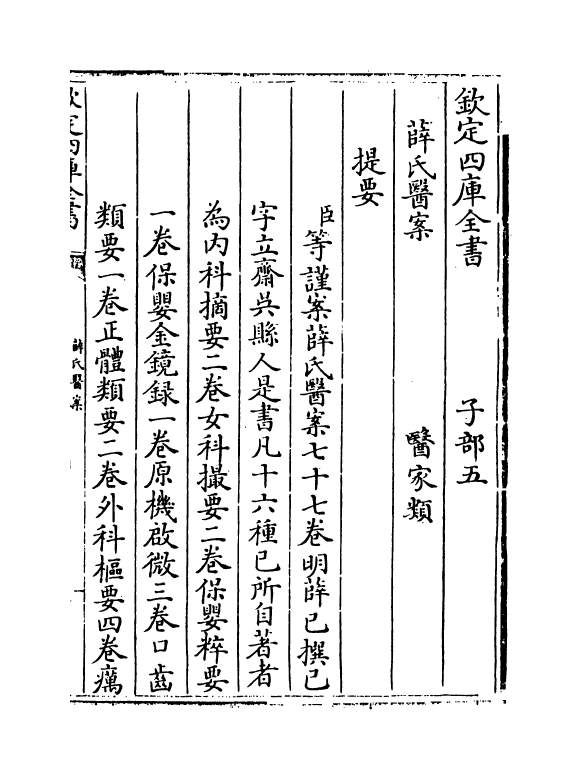 欽定四庫全書　子部五
薛氏醫案　醫家類
提要
臣等謹案薛氏醫案七十七卷明薛己撰己
字立齋吳縣人是書凡十六種己所自著者
為内科摘要二卷女科撮要二卷保嬰粹要
一卷保嬰金鏡録一卷原機啟微三卷口齒
類要一卷正體類要二卷外科樞要四卷癘
欽定四庫全書
薛氏醫案